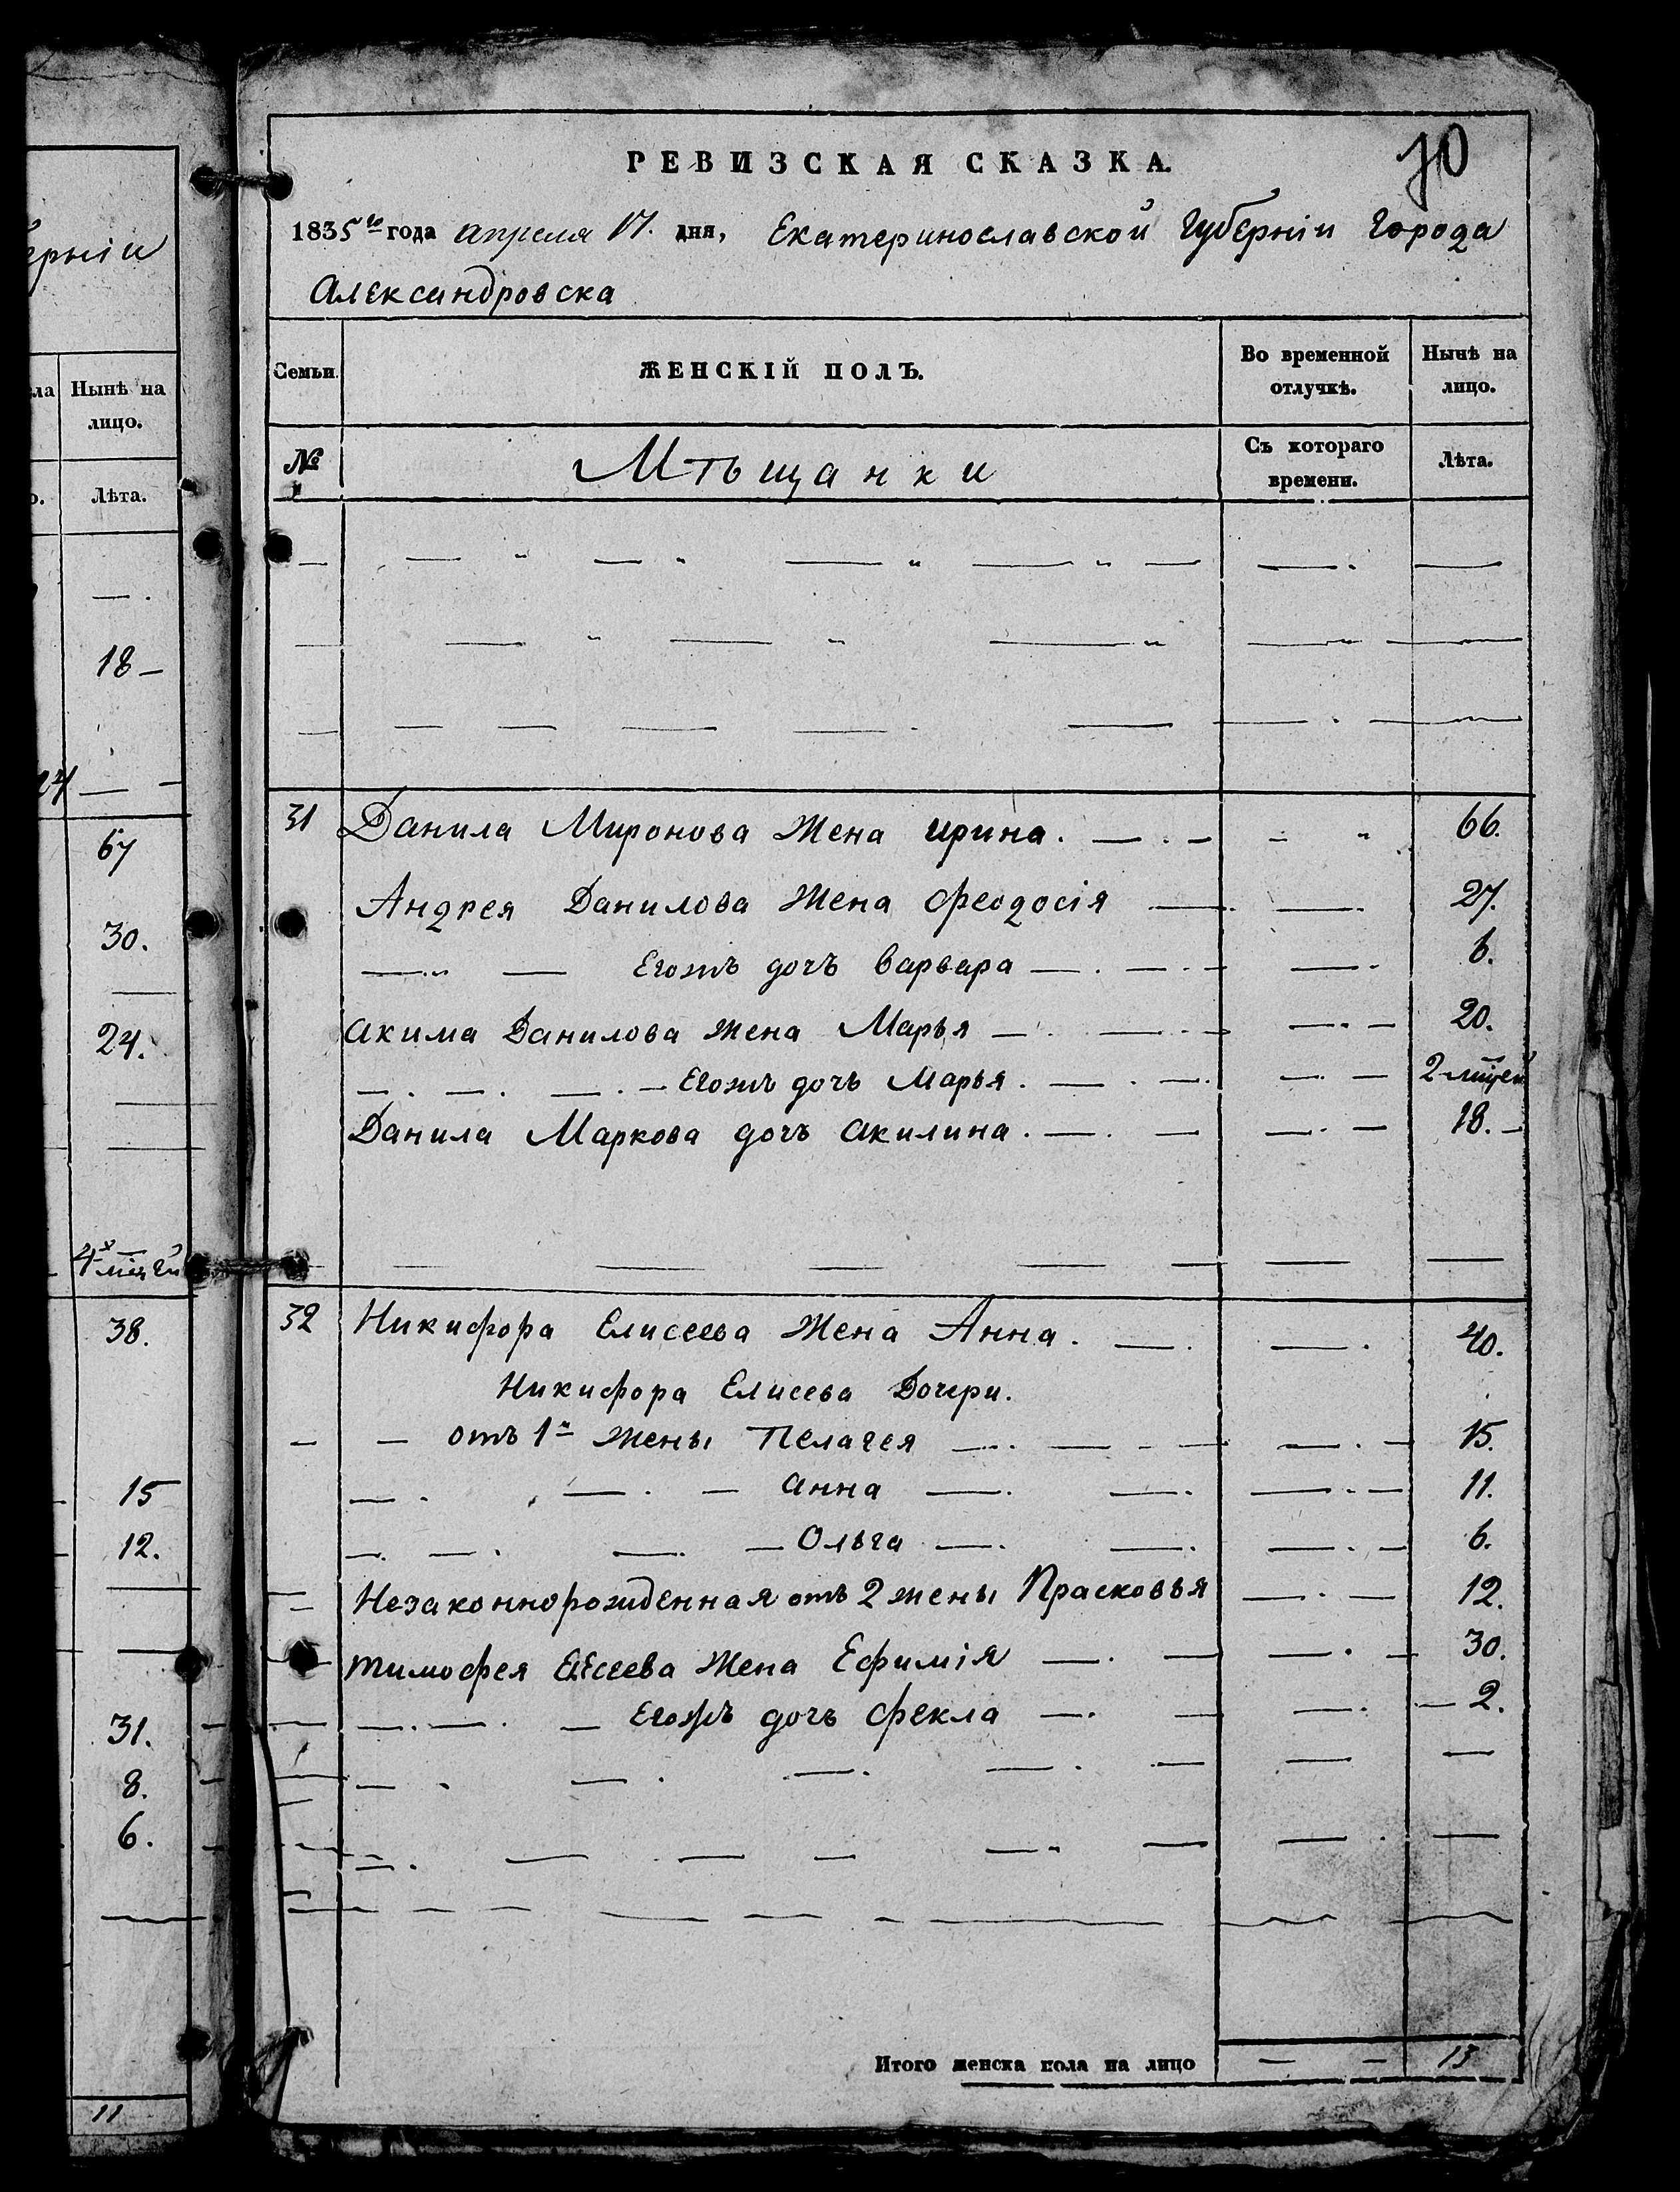 ерніи
ла Нынѣ на
лицо.
о. Лѣта.
18
24
67
30.
24.
4
38.
15
12.
31.
8.
6.
11
РЕВИЗСКАЯ СКАЗКА.
70
1835го года апреля 17. дня, Екатеринославской Губерніи Города
Александровска
Семьи. ЖЕНСКІЙ ПОЛЪ. Во временной отлучкѣ. Нынѣ на лицо.
№ Мѣщанки Съ котораго времени. Лѣта.
31 Данила Миронова Жена ирина. 66.
Андрея Данилова Жена Феодосія 27.
Егожъ дочь варвара 6.
акима Данилова Жена Марья 20.
Егожъ дочь Марья. 2
Данила Маркова дочь акилина. 18.
32 Никифора Елисеева Жена Анна. 40.
Никифора Елисева Дочери.
отъ 1й Жены Пелагея 15.
анна 11.
Ольга 6.
Незаконнорожденная отъ 2 жены Прасковья 12.
тимофея Елисеева Жена Ефимія 30.
Егожъ дочь Фекла 2.
Итого женска пола на лицо 13